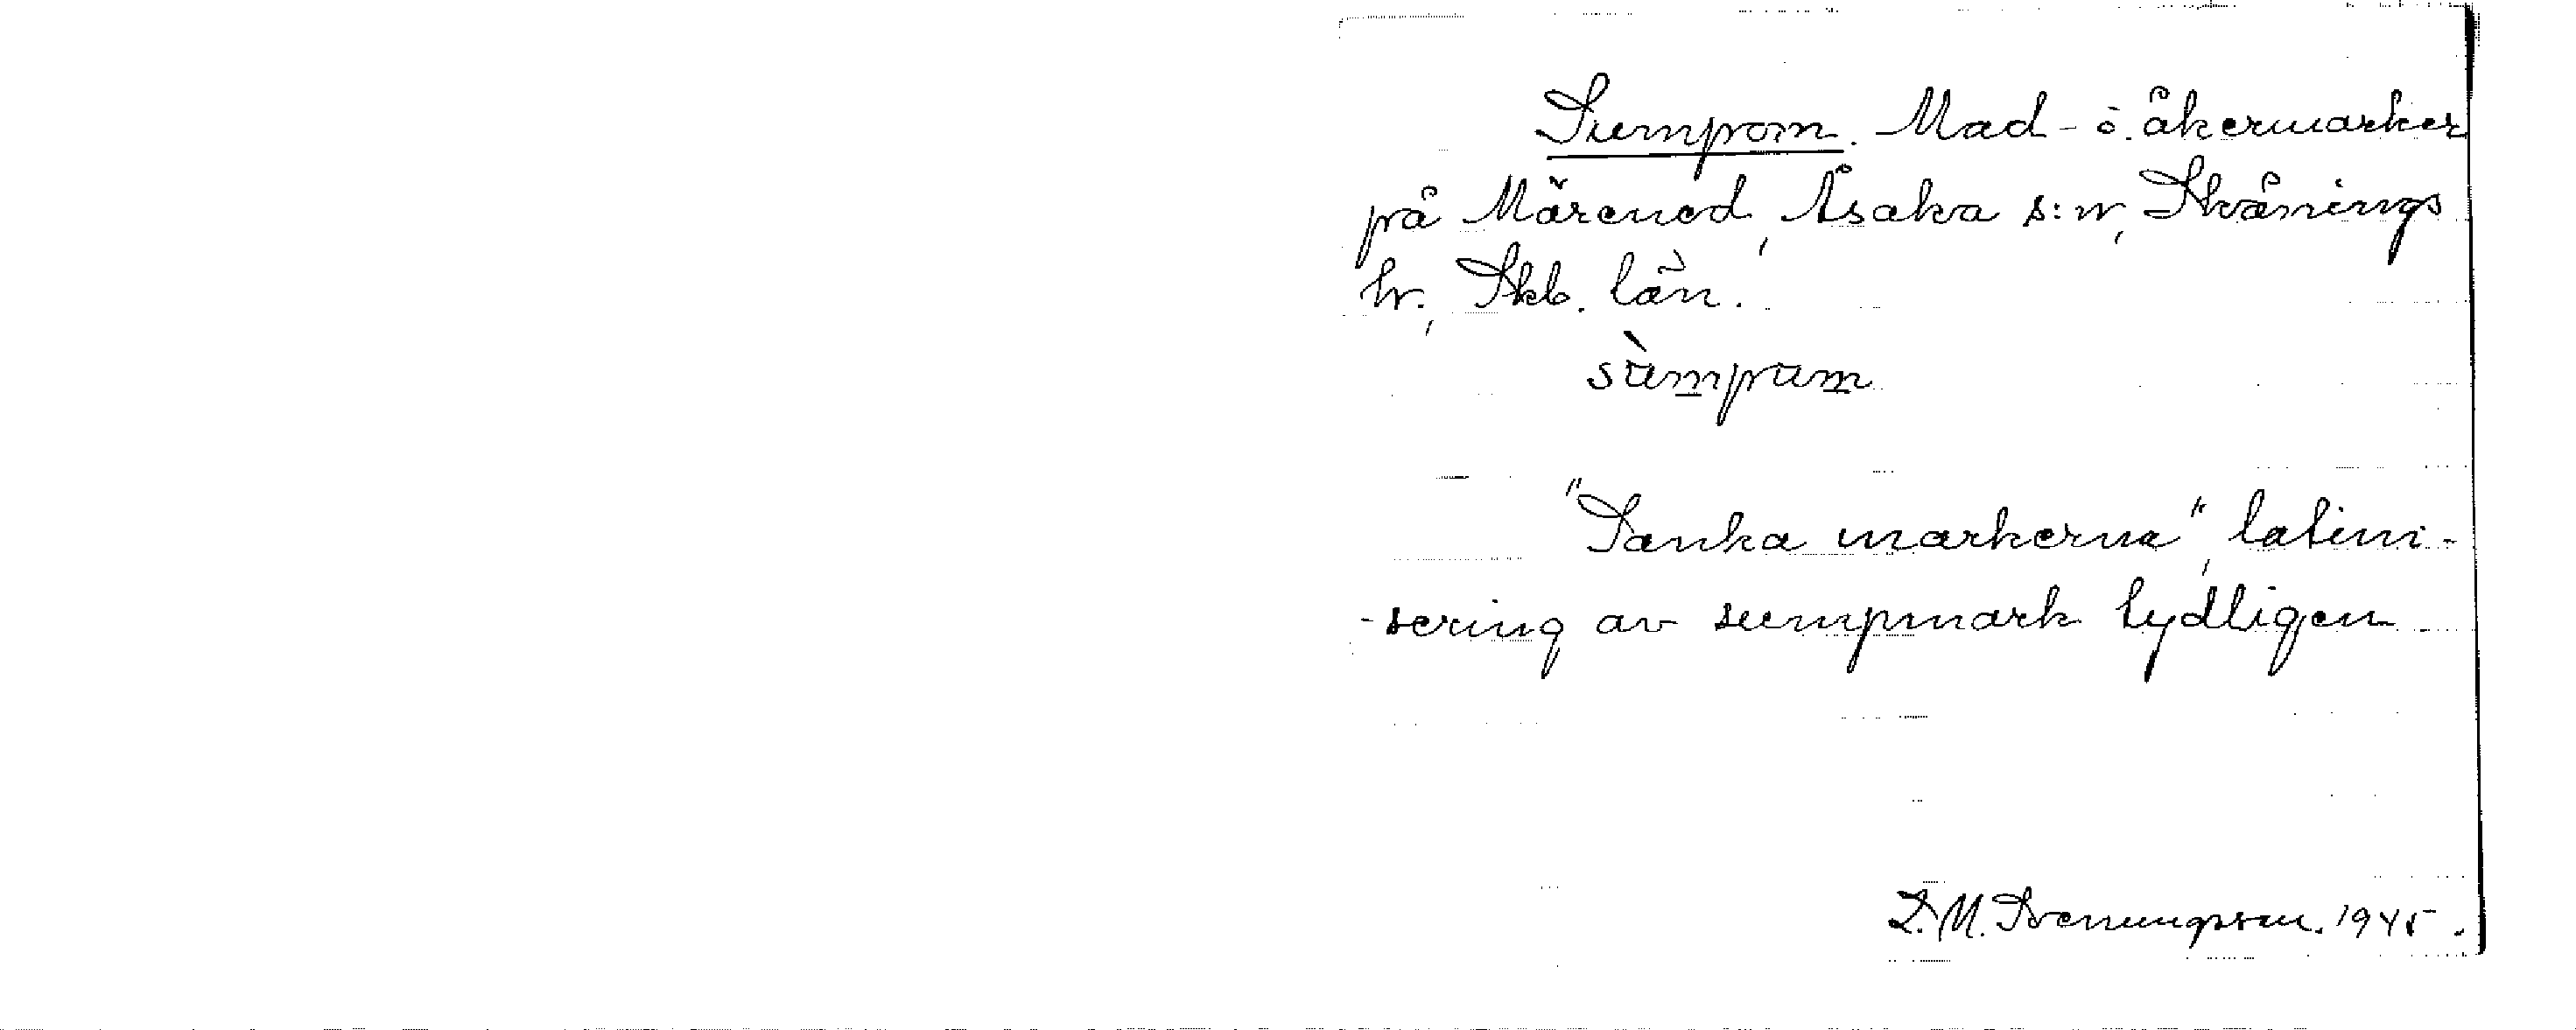 Sumpom. Mad- o. åkermarker
på Märened, Åsaka s:n, Skånings
hr., Skb. län.
sùmpum
"Sanka markerna", latini-
-sering av sumpmark tydligen
L. M. Svenungsson. 1945.